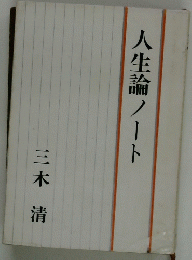 人生論ノート
三木清